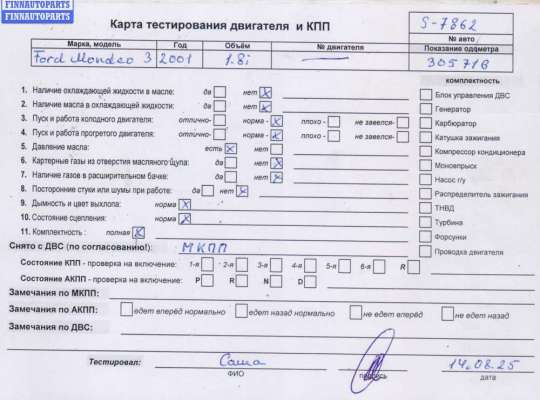 FINNAUTOPARTS
FINNAUTOPARTS
Карта тестирования двигателя и КПП
S-7862
№ авто
Марка, модель Год Объём № двигателя Показание одометра
Ford Mondeo 3 2001 1.8i 305716
комплектность
1. Наличие охлаждающей жидкости в масле: да нет X
Блок управления ДВС
2. Наличие масла в охлаждающей жидкости: да нет X
Генератор
3. Пуск и работа холодного двигателя: отлично- норма - X плохо - не завелся-
Карбюратор
4. Пуск и работа прогретого двигателя: отлично- норма - X плохо - не завелся-
Катушка зажигания
5. Давление масла: есть X нет
Компрессор кондиционера
6. Картерные газы из отверстия масляного щупа: да нет X
Моновпрыск
7. Наличие газов в расширительном бачке: да нет X
Насос г/у
8. Посторонние стуки или шумы при работе: да нет X
Распределитель зажигания
9. Дымность и цвет выхлопа: норма X
ТНВД
10. Состояние сцепления: норма X
Турбина
11. Комплектность : полная X
Форсунки
Снято с ДВС (по согласованию!): МКПП
Проводка двигателя
Состояние КПП - проверка на включение: 1-я 2-я 3-я 4-я 5-я 6-я R
Состояние АКПП - проверка на включение: P R N D
Замечания по МКПП:
Замечания по АКПП: едет вперёд нормально едет назад нормально не едет вперёд не едет назад
Замечания по ДВС:
Тестировал: Саша 14.08.25
ФИО подпись дата